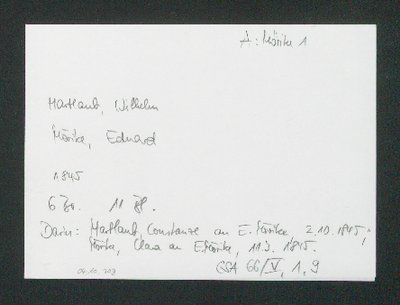 A: Mörike 1
Hartlaub, Wilhelm
Mörike, Eduard
1845
6 Br. 11 Bl.
Darin: Hartlaub, Constanze an E. Mörike 2.10.1845;
Mörike, Clara an E. Mörike, 11.3.1845.
GSA 66/V, 1,9